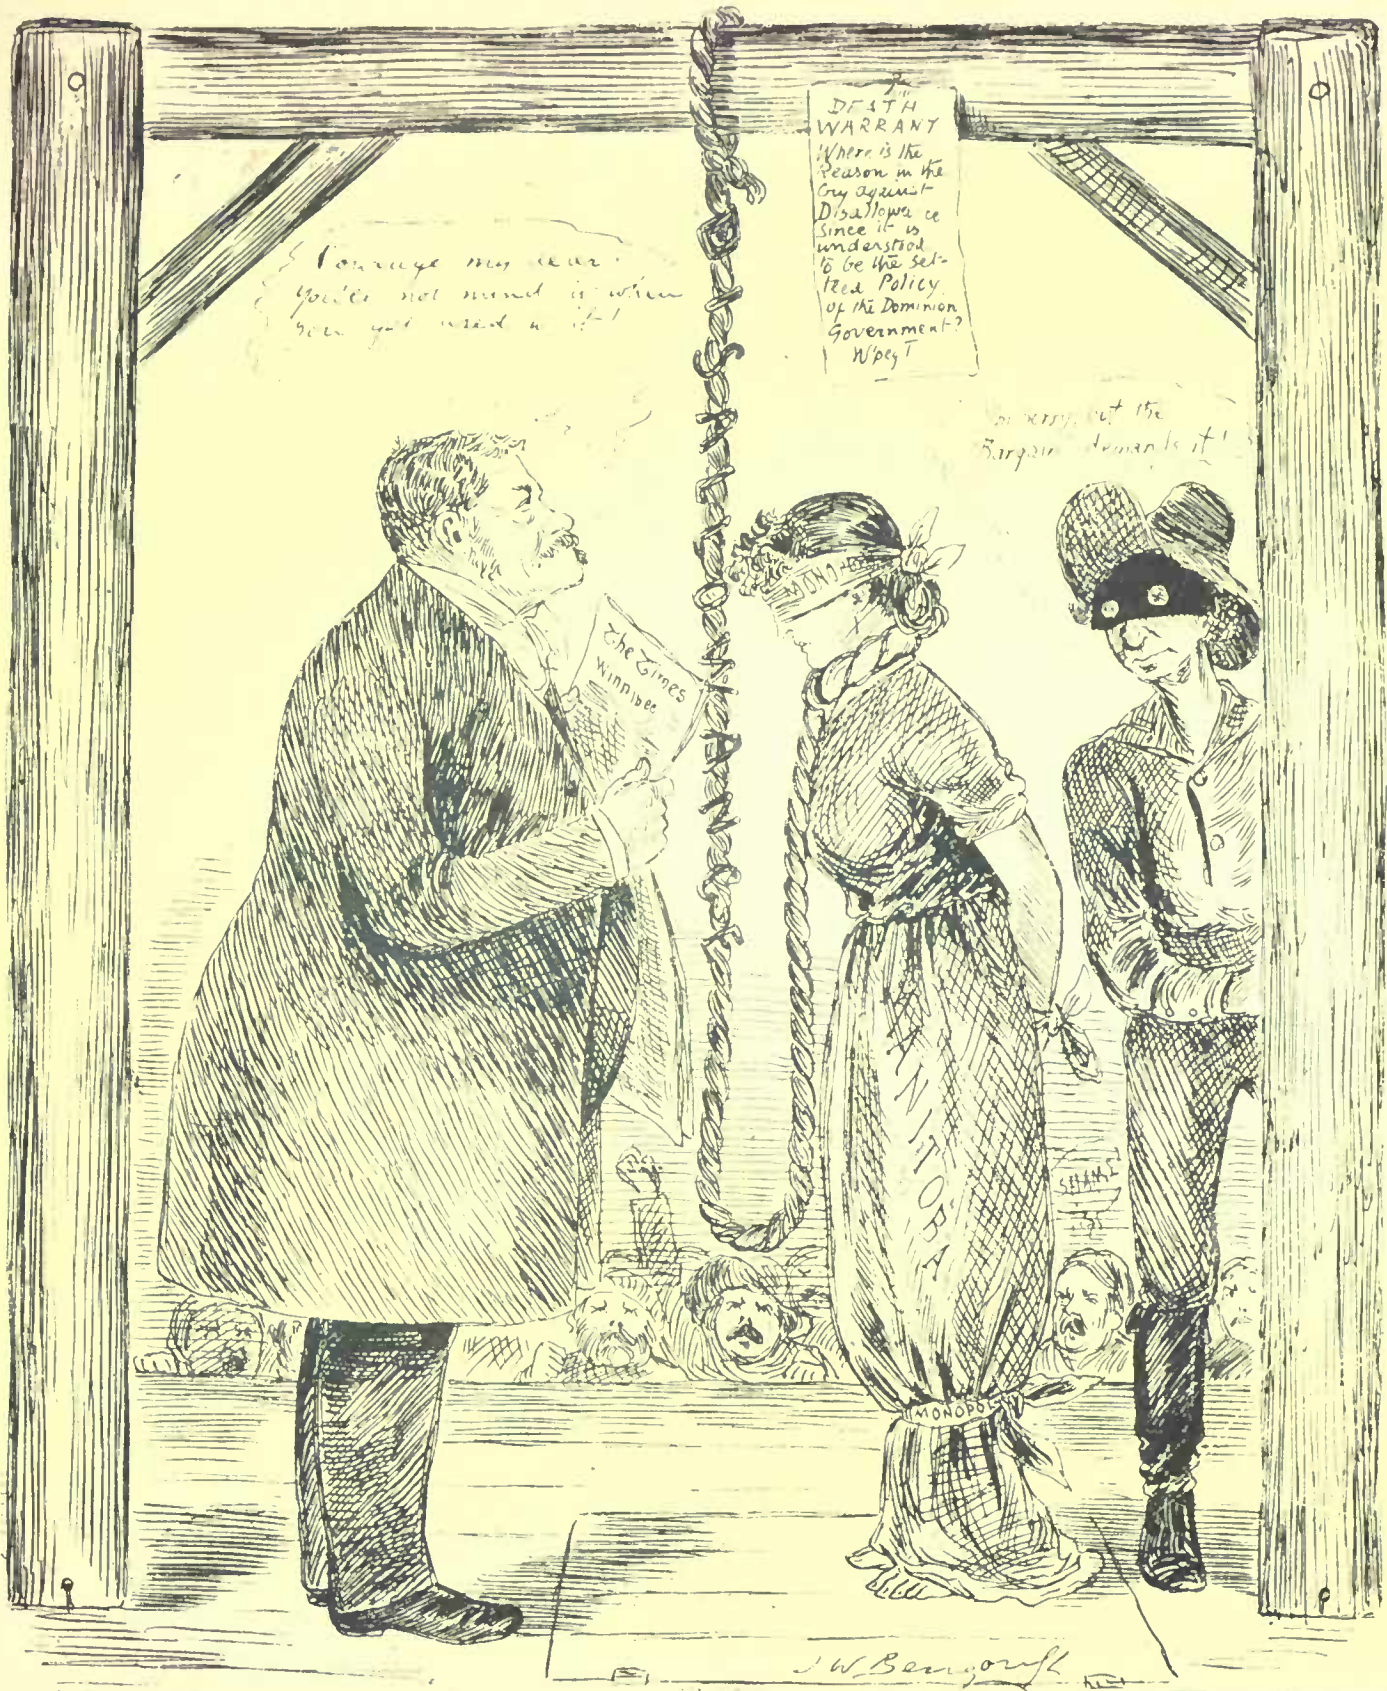 DEATH
WARRANT
Where is the
Reason in the
Cry against
Disallowa ce
Since it is
understood
to be the Set-
tled Policy
of the Dominion
Government?
W'peg T
Courage my dear
you'll not mind it when
you get used to it!
sorry, but the
Bargain demands it!
DISALLOWANCE
The Times
Winnipeg
MONO
MANITOBA
SHAME
MONOPOLY
J W Bengough